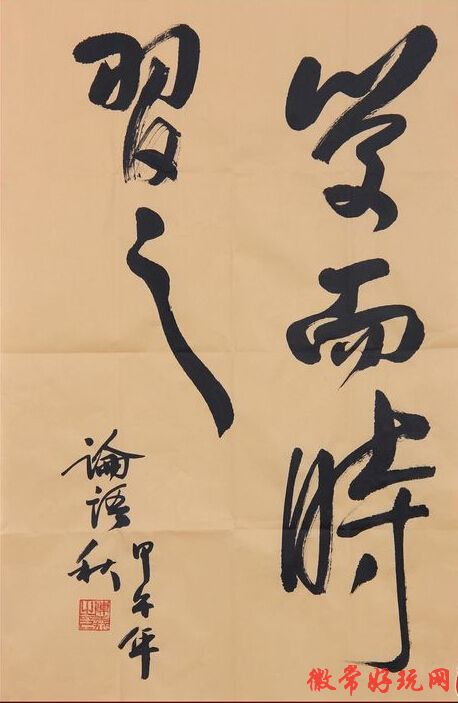 學而時
習之
論語
甲午年
秋
徽常好玩网